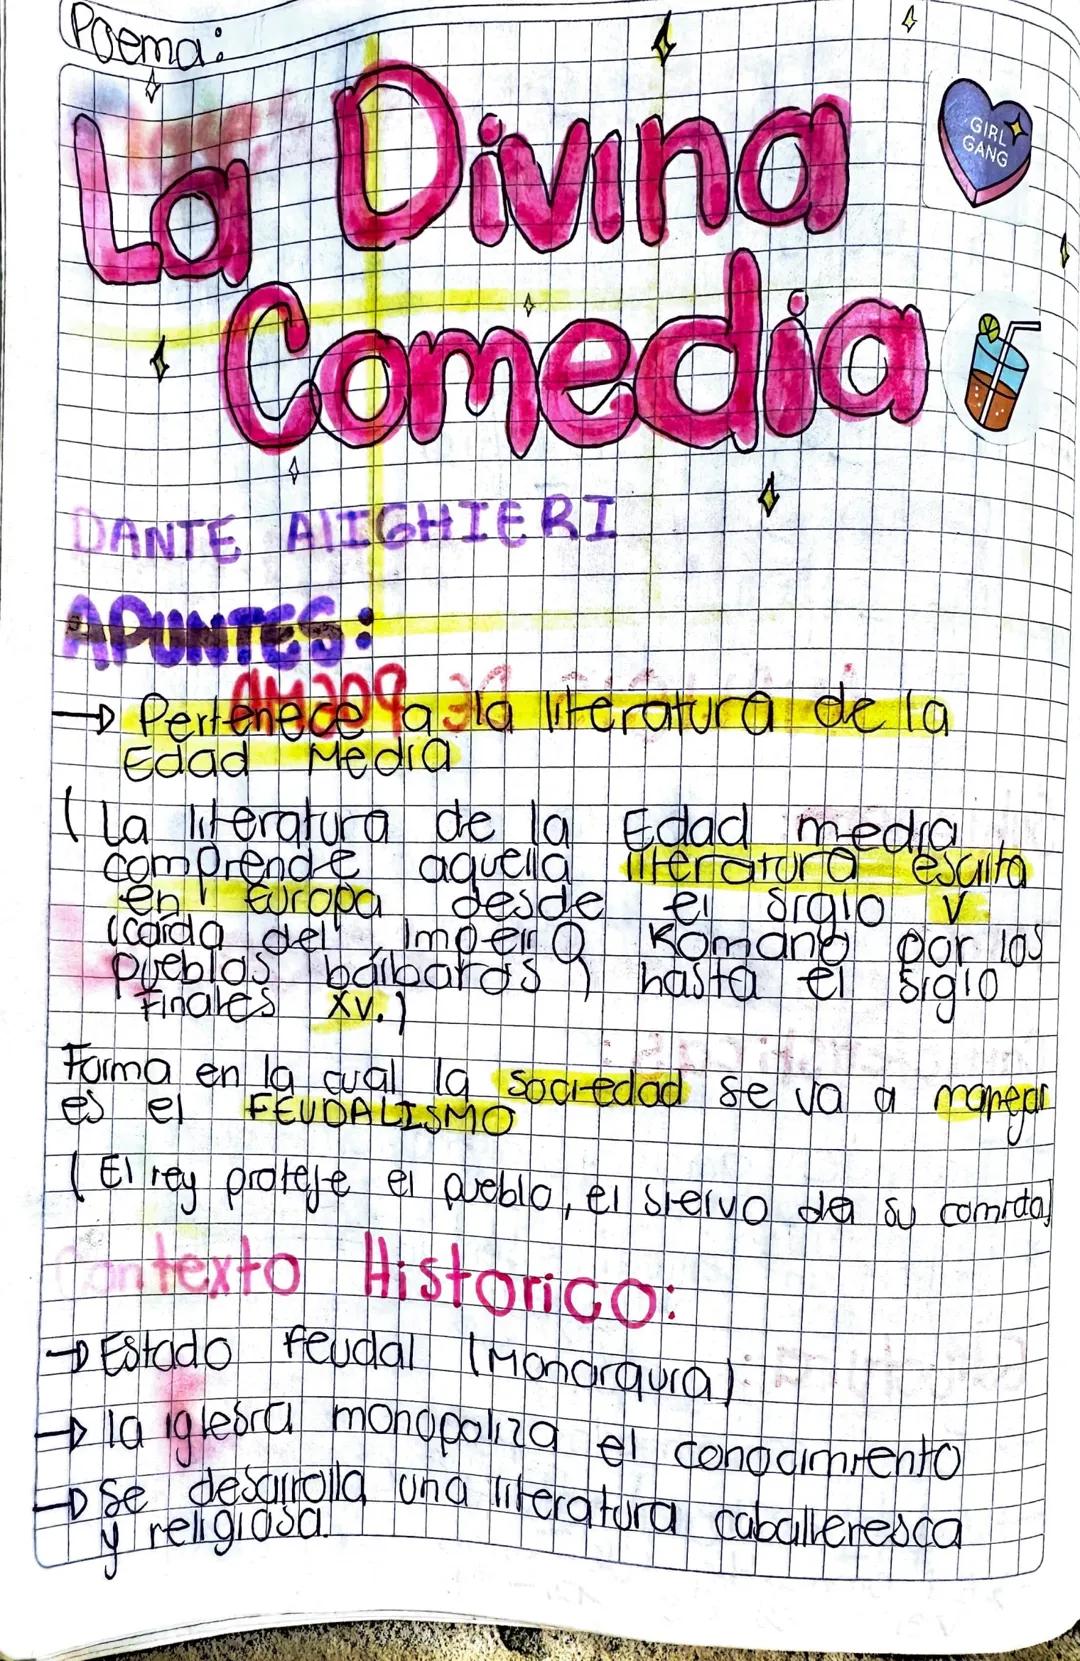 Poema:
La Divina
Comedia
GIRL
GANG
DANTE AlIGHIERI
APUNTES:
Pertenece a la literatura de la
Edad Media
(La literatura de la Edad media
comprende aquella literatura escrita
en Europa desde el siglo V
(caída del Imperio Romano por los
pueblos bárbaros) hasta el siglo
Finales XV.)
Forma en la cual la sociedad se va a manejar
es el FEUDALISMO
(El rey proteje el pueblo, el siervo da su comida)
Contexto Historico:
Estado feudal (Monarquia)
la iglesia monopoliza el conocimiento
se desarrolla una literatura caballeresca
y religiosa.